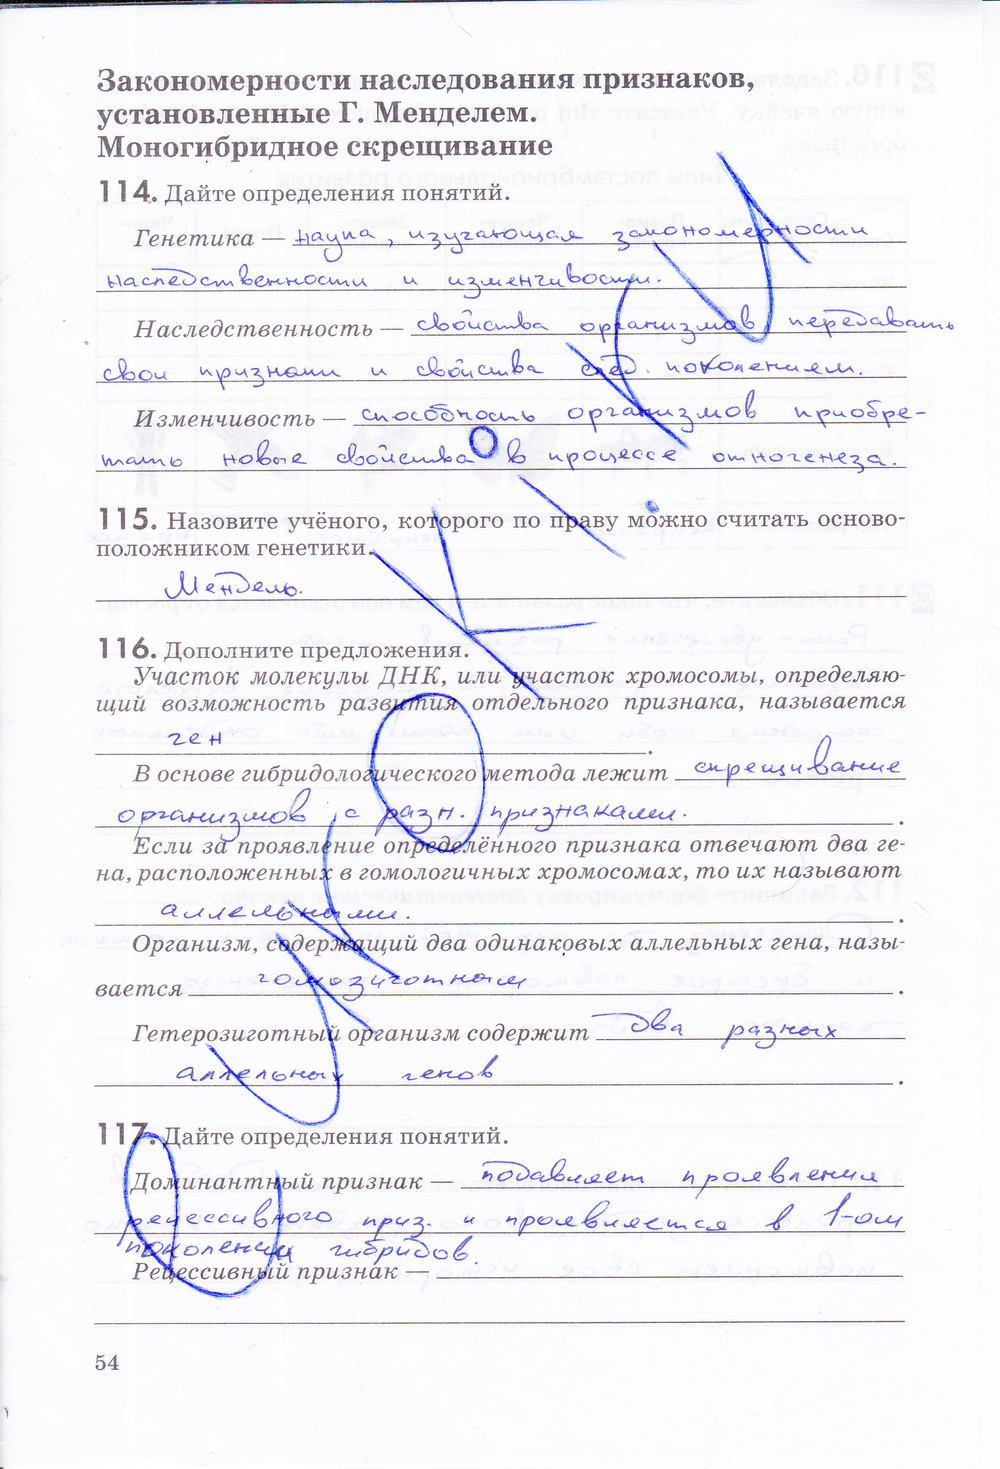 Закономерности наследования признаков,
установленные Г. Менделем.
Моногибридное скрещивание
114. Дайте определения понятий.
Генетика — наука, изучающая закономерности
наследственности и изменчивости.
Наследственность — свойства организмов передавать
свои признаки и свойства след. поколением.
Изменчивость — способность организмов приобре-
тать новые свойства в процессе отногенеза.
115. Назовите учёного, которого по праву можно считать осново-
положником генетики.
Мендель.
116. Дополните предложения.
Участок молекулы ДНК, или участок хромосомы, определяю-
щий возможность развития отдельного признака, называется
ген .
В основе гибридологического метода лежит скрещивание
организмов с разн. признаками. .
Если за проявление определённого признака отвечают два ге-
на, расположенных в гомологичных хромосомах, то их называют
аллельными. .
Организм, содержащий два одинаковых аллельных гена, назы-
вается гомозиготным .
Гетерозиготный организм содержит два разных
аллельных генов .
117. Дайте определения понятий.
Доминантный признак — подавляет проявления
рецессивного приз. и проявляется в 1-ом
поколении гибридов.
Рецессивный признак —
54